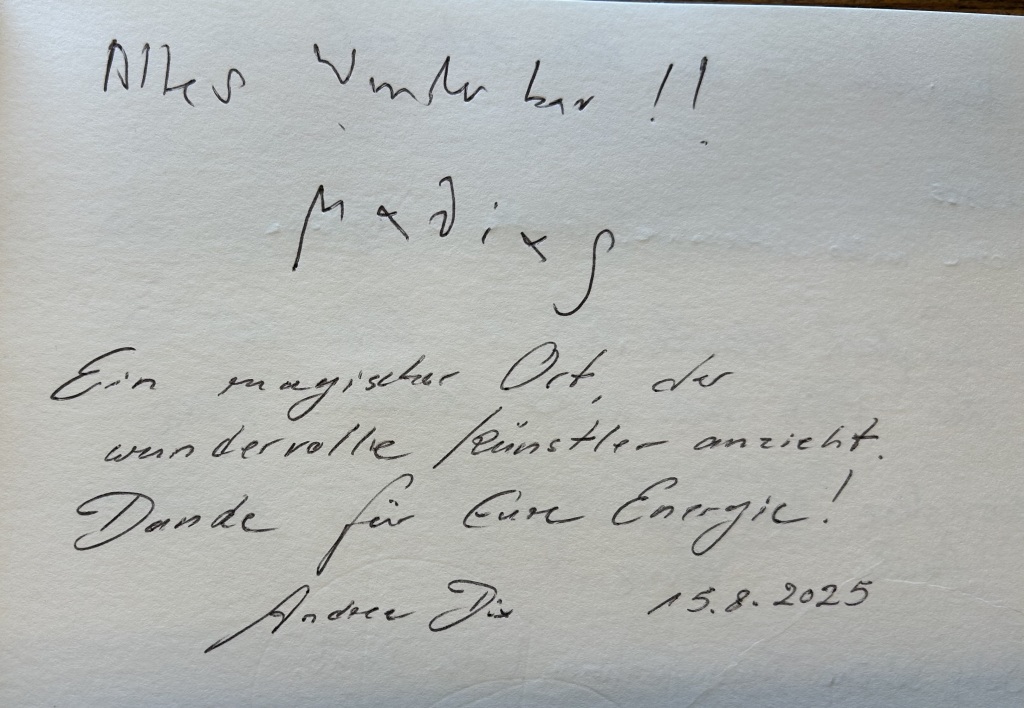 Alles Wunderbar !!
Ein magischer Ort, der
wundervolle Künstler anzieht.
Danke für Eure Energie!
Andrea Dix 15.8.2025